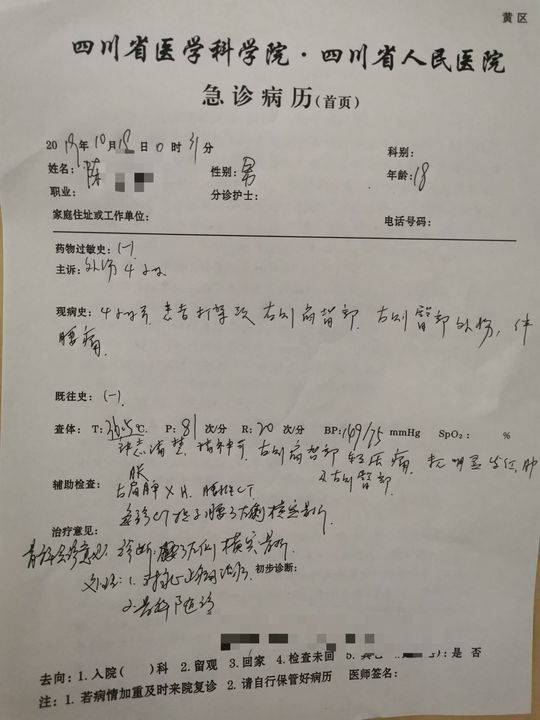 黄区
四川省医学科学院·四川省人民医院
急诊病历(首页)
2019年10月15日0时31分 科别:
姓名:陈 性别:男 年龄:18
职业: 分诊护士:
家庭住址或工作单位: 电话号码:
药物过敏史:(-)
主诉:外伤4小时
现病史:4小时前 患者打架致 右侧肩背部 右侧臀部外伤,伴
腰痛
既往史:(-).
查体: T:36.5℃. P:81次/分 R:20次/分 BP:149/75mmHg SpO₂: %
神志清楚 精神可 右侧肩背部轻压痛 无明显 肿
胀 右侧臀部
辅助检查: 右肩胛X片. 腰椎CT
急诊CT 腰 左侧横突骨折
治疗意见:
骨科会诊意见: 诊断 腰 左侧横突骨折
初步诊断:
处理:1. 对症止痛治疗
2.骨科随诊
去向:1.入院( )科 2.留观 3.回家 4.检查未回 5. :是 否
注:1.若病情加重及时来院复诊 2.请自行保管好病历 医师签名: